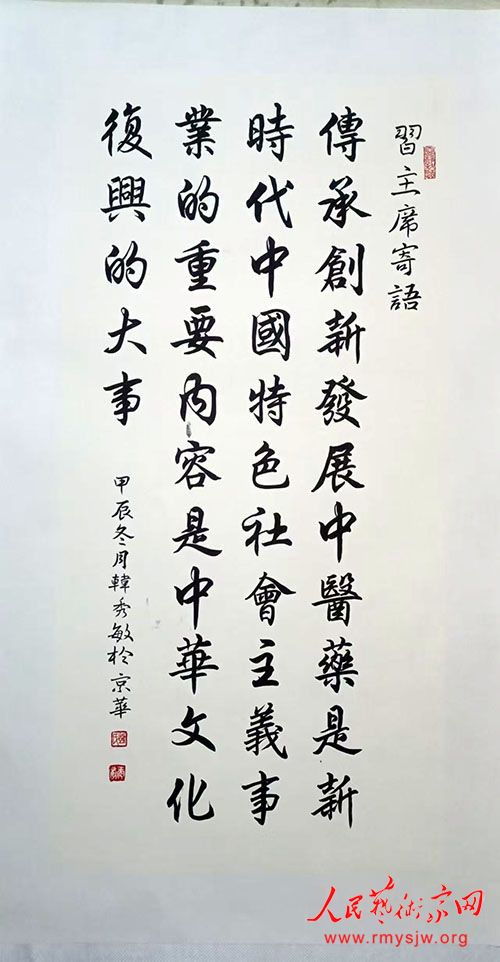 習主席寄語
傳承創新發展中醫藥是新
時代中國特色社會主義事
業的重要内容是中華文化
復興的大事
甲辰冬月韓秀敏於京華
人民藝術家网
www.rmysjw.org